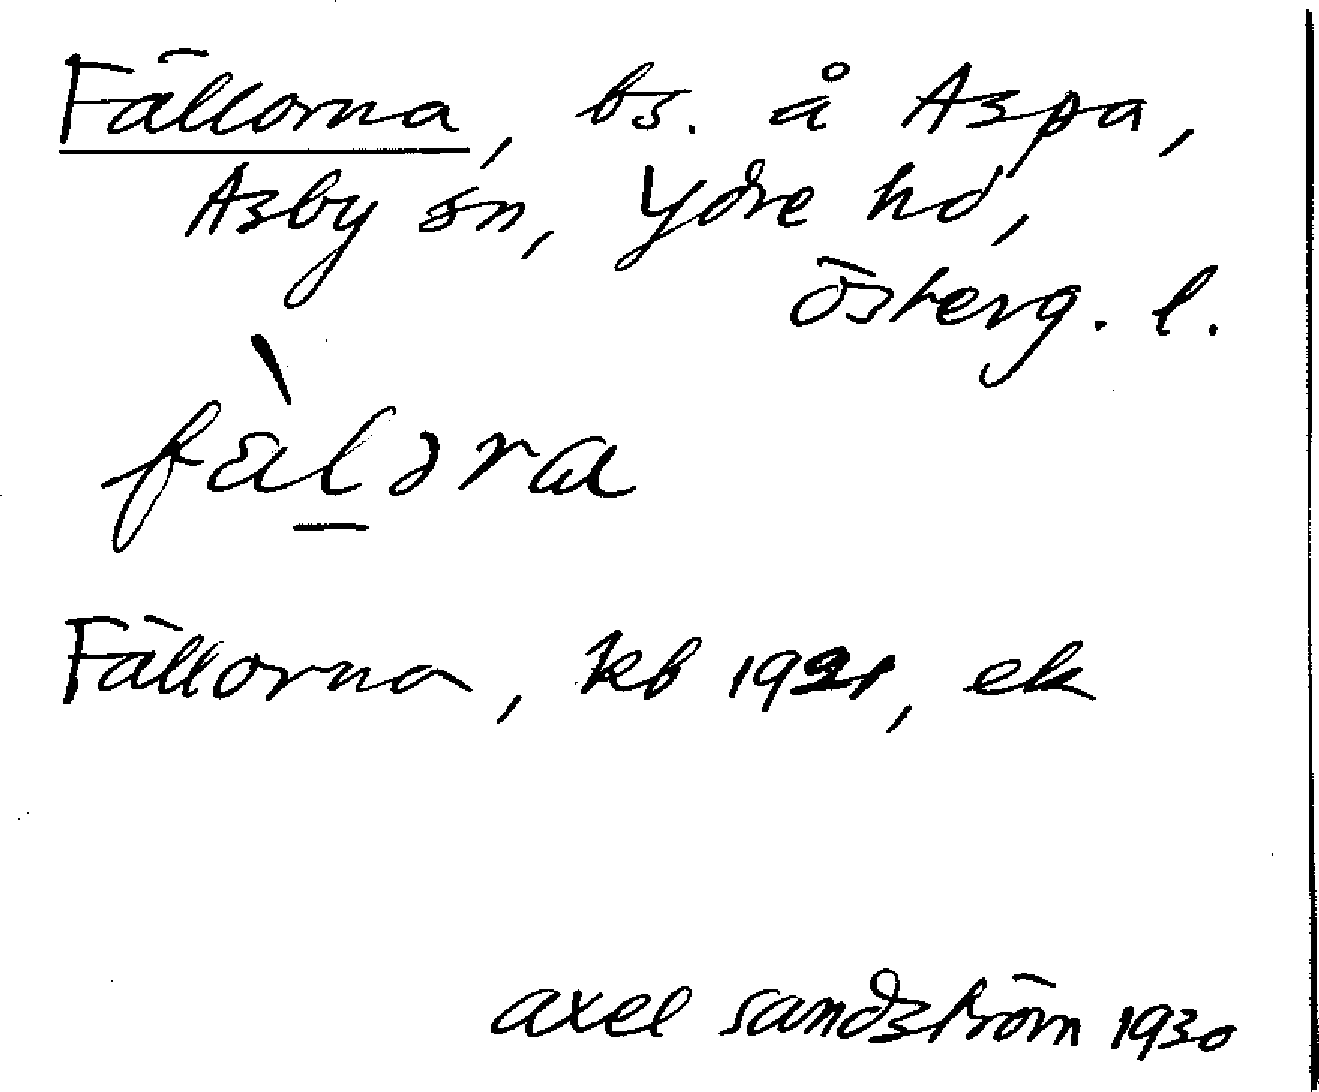 Fällorna, bs. å Aspa,
Asby sn, Ydre hd,
Österg. l.
fàl̲ɔra
Fällorna, kb 1921, ek
axel sandström 1930